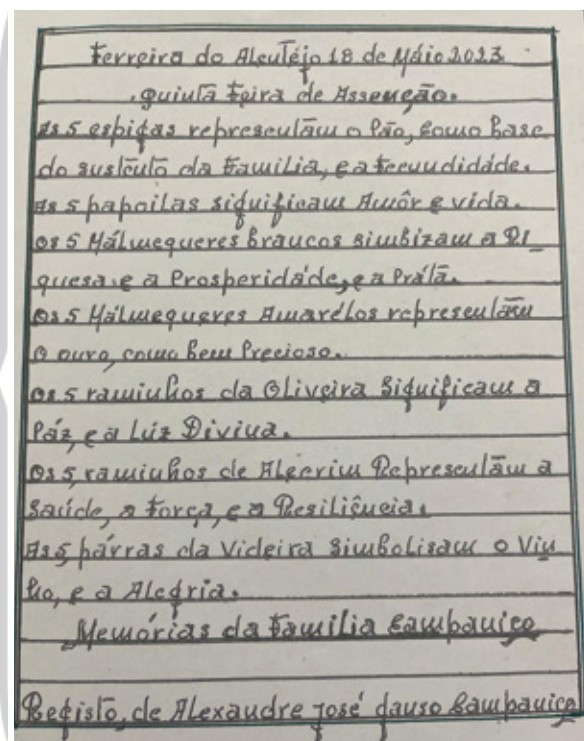 Ferreira do Alentejo 18 de Máio 2023
Quinta Feira de Assenção.
As 5 espigas representãm o Pão, como Base
do sustento da Familia, e a fecundidáde.
As 5 papoilas significam Amôr e vida.
Os 5 Málmequeres Brancos simbizam a Ri_
quesa e a Prosperidáde, e a Práta.
Os 5 Málmequeres Amarélos representãm
O ouro, como Bem Precioso.
Os 5 raminhos da Oliveira Significam a
Páz, e a Lúz Divina.
Os 5, raminhos de Alecrim Representãm a
Saúde, a Força, e a Resiliência.
As 5 párras da Videira Simbolisam o Vin
ho, e a Alegria.
Memórias da Familia Campaniço
Registo, de Alexandre José Campaniço